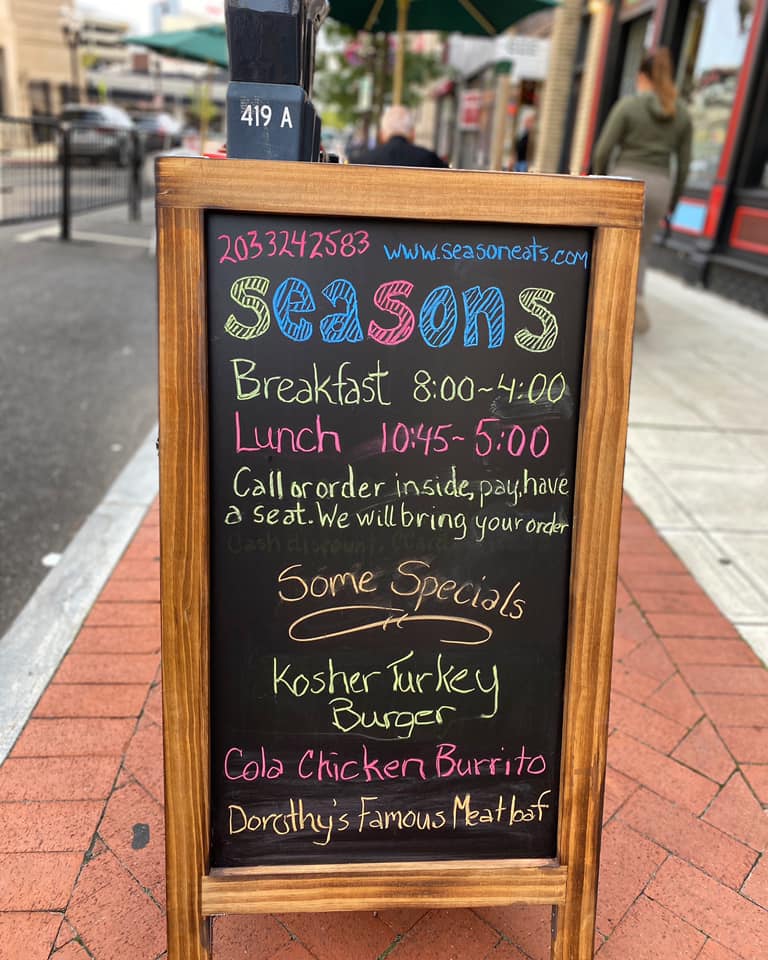 419 A
2033242583 www.seasoneats.com
Seasons
Breakfast 8:00~4:00
Lunch 10:45~5:00
Call or order inside, pay, have
a seat. We will bring your order
Cash discount.
Some Specials
Kosher Turkey
Burger
Cola Chicken Burrito
Dorothy's Famous Meatloaf